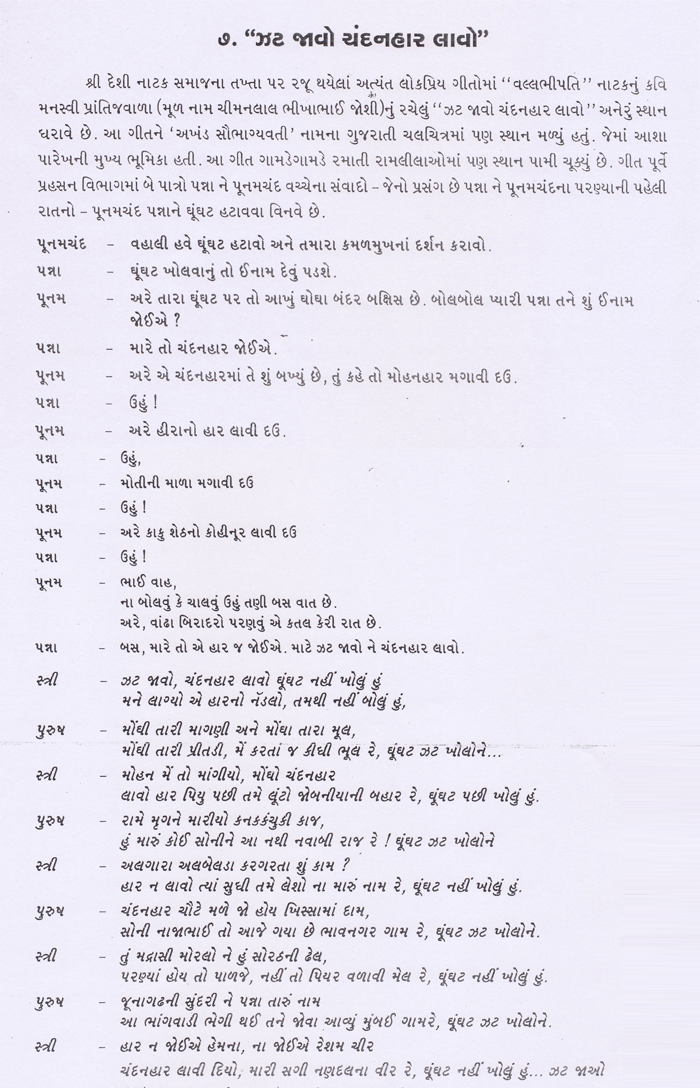 ૭. “ઝટ જાવો ચંદનહાર લાવો”
શ્રી દેશી નાટક સમાજના તખ્તા પર રજૂ થયેલાં અત્યંત લોકપ્રિય ગીતોમાં “વલ્લભીપતિ” નાટકનું કવિ
મનસ્વી પ્રાંતિજવાળા (મૂળ નામ ચીમનલાલ ભીખાભાઈ જોશી)નું રચેલું “ઝટ જાવો ચંદનહાર લાવો” અનેરું સ્થાન
ધરાવે છે. આ ગીતને ‘અખંડ સૌભાગ્યવતી’ નામના ગુજરાતી ચલચિત્રમાં પણ સ્થાન મળ્યું હતું. જેમાં આશા
પારેખની મુખ્ય ભૂમિકા હતી. આ ગીત ગામડેગામડે રમાતી રામલીલાઓમાં પણ સ્થાન પામી ચૂક્યું છે. ગીત પૂર્વે
પ્રહસન વિભાગમાં બે પાત્રો પન્ના ને પૂનમચંદ વચ્ચેના સંવાદો – જેનો પ્રસંગ છે પન્ના ને પૂનમચંદના પરણ્યાની પહેલી
રાતનો – પૂનમચંદ પન્નાને ઘૂંઘટ હટાવવા વિનવે છે.
પૂનમચંદ – વહાલી હવે ઘૂંઘટ હટાવો અને તમારા કમળમુખનાં દર્શન કરાવો.
પન્ના – ઘૂંઘટ ખોલવાનું તો ઈનામ દેવું પડશે.
પૂનમ – અરે તારા ઘૂંઘટ પર તો આખું ઘોઘા બંદર બક્ષિસ છે. બોલબોલ પ્યારી પન્ના તને શું ઈનામ
જોઈએ ?
પન્ના – મારે તો ચંદનહાર જોઈએ.
પૂનમ – અરે એ ચંદનહારમાં તે શું બખ્યું છે, તું કહે તો મોહનહાર મગાવી દઉં.
પન્ના – ઉહું !
પૂનમ – અરે હીરાનો હાર લાવી દઉ.
પન્ના – ઉહું,
પૂનમ – મોતીની માળા મગાવી દઉ
પન્ના – ઉહું !
પૂનમ – અરે કાકુ શેઠનો કોહીનૂર લાવી દઉ
પન્ના – ઉહું !
પૂનમ – ભાઈ વાહ,
ના બોલવું કે ચાલવું ઉહું તણી બસ વાત છે.
અરે, વાંઢા બિરાદરો પરણવું એ કતલ કેરી રાત છે.
પન્ના – બસ, મારે તો એ હાર જ જોઈએ. માટે ઝટ જાવો ને ચંદનહાર લાવો.
સ્ત્રી – ઝટ જાવો, ચંદનહાર લાવો ઘૂંઘટ નહીં ખોલું હું
મને લાગ્યો એ હારનો નૅડલો, તમથી નહીં બોલું હું,
પુરુષ – મોંઘી તારી માગણી અને મોંઘા તારા મૂલ,
મોંઘી તારી પ્રીતડી, મેં કરતાં જ કીધી ભૂલ રે, ઘૂંઘટ ઝટ ખોલોને...
સ્ત્રી – મોહન મેં તો માંગીયો, મોંઘો ચંદનહાર
લાવો હાર પિયુ પછી તમે લૂંટો જોબનીયાની બહાર રે, ઘૂંઘટ પછી ખોલું હું.
પુરુષ – રામે મૃગને મારીયો કનકકંચુકી કાજ,
હું મારું કોઈ સોનીને આ નથી નવાબી રાજ રે ! ઘૂંઘટ ઝટ ખોલોને
સ્ત્રી – અલગારા અલબેલડા કરગરતા શું કામ ?
હાર ન લાવો ત્યાં સુધી તમે લેશો ના મારું નામ રે, ઘૂંઘટ નહીં ખોલું હું.
પુરુષ – ચંદનહાર ચૌટે મળે જો હોય ખિસ્સામાં દામ,
સોની નાજાભાઈ તો આજે ગયા છે ભાવનગર ગામ રે, ઘૂંઘટ ઝટ ખોલોને.
સ્ત્રી – તું મદ્રાસી મોરલો ને હું સોરઠની ઢેલ,
પરણ્યાં હોય તો પાળજે, નહીં તો પિયર વળાવી મેલ રે, ઘૂંઘટ નહીં ખોલું હું.
પુરુષ – જૂનાગઢની સુંદરી ને પન્ના તારું નામ
આ ભાંગવાડી ભેગી થઈ તને જોવા આવ્યું મુંબઈ ગામરે, ઘૂંઘટ ઝટ ખોલોને.
સ્ત્રી – હાર ન જોઈએ હેમના, ના જોઈએ રેશમ ચીર
ચંદનહાર લાવી દિયો, મારી સગી નણદલના વીર રે, ઘૂંઘટ નહીં ખોલું હું... ઝટ જાઓ